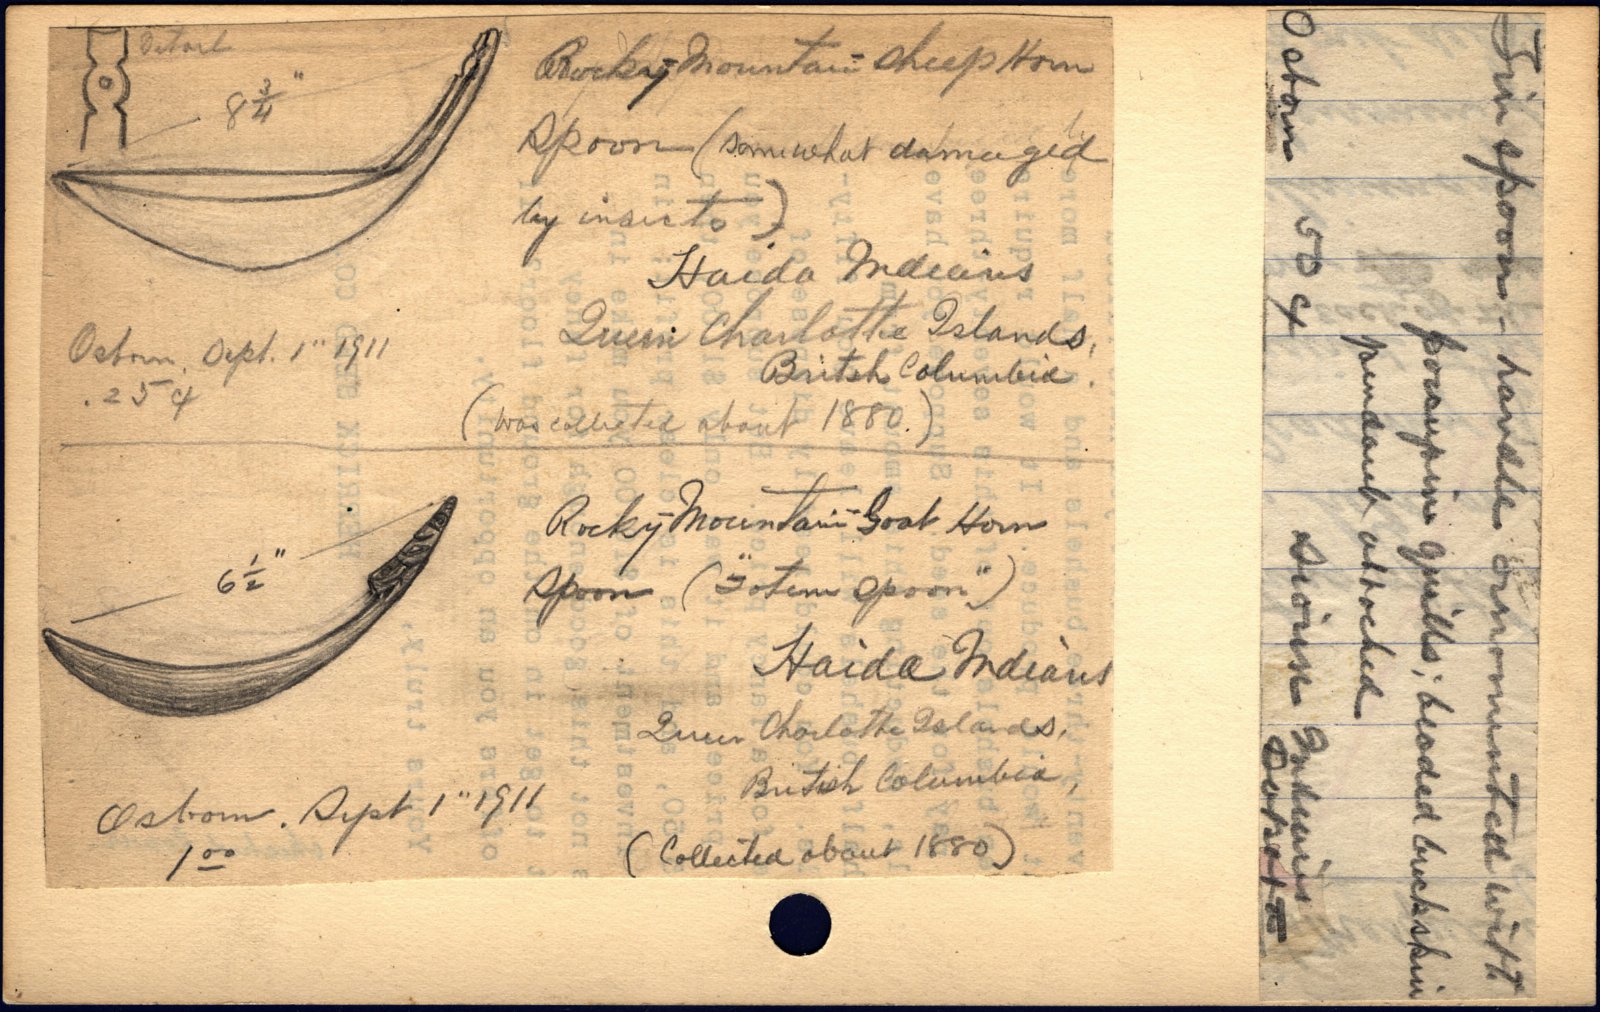 Detail
8 3/4"
Rocky-Mountain-sheep Horn
spoon (somewhat damaged
by insects)
Haida Indians
Queen Charlotte Islands,
British Columbia.
(was collected about 1880.)
Osborn, Sept. 1" 1911
.25¢
6 1/2"
Rocky-Mountain-Goat Horn
spoon ("Totem spoon")
Haida Indians
Queen Charlotte Islands,
British Columbia,
(Collected about 1880)
Osborn. Sept 1" 1911
1 00
Tin spoon - handle ornamented with
porcupine quills; beaded buckskin
pendant attached
Osborn 50¢ Sioux Indians
Dakota